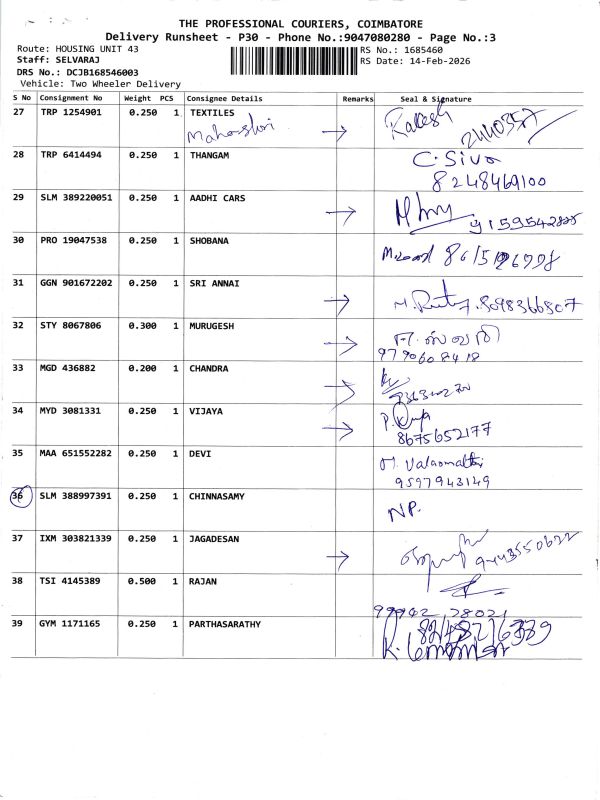 THE PROFESSIONAL COURIERS, COIMBATORE
Delivery Runsheet - P30 - Phone No.:9047080280 - Page No.:3
Route: HOUSING UNIT 43
RS No.: 1685460
Staff: SELVARAJ
RS Date: 14-Feb-2026
DRS No.: DCJB168546003
Vehicle: Two Wheeler Delivery
S No Consignment No Weight PCS Consignee Details Remarks Seal & Signature
27 TRP 1254901 0.250 1 TEXTILES Rakesh
2440357
28 TRP 6414494 0.250 1 THANGAM C. Siva
8248469100
29 SLM 389220051 0.250 1 AADHI CARS
30 PRO 19047538 0.250 1 SHOBANA
31 GGN 901672202 0.250 1 SRI ANNAI
8098366807
32 STY 8067806 0.300 1 MURUGESH
9790608418
33 MGD 436882 0.200 1 CHANDRA
34 MYD 3081331 0.250 1 VIJAYA
8675652177
35 MAA 651552282 0.250 1 DEVI M. Valarmathi
9597943149
36 SLM 388997391 0.250 1 CHINNASAMY NP.
37 IXM 303821339 0.250 1 JAGADESAN 9443550622
38 TSI 4145389 0.500 1 RAJAN
99942 28021
39 GYM 1171165 0.250 1 PARTHASARATHY